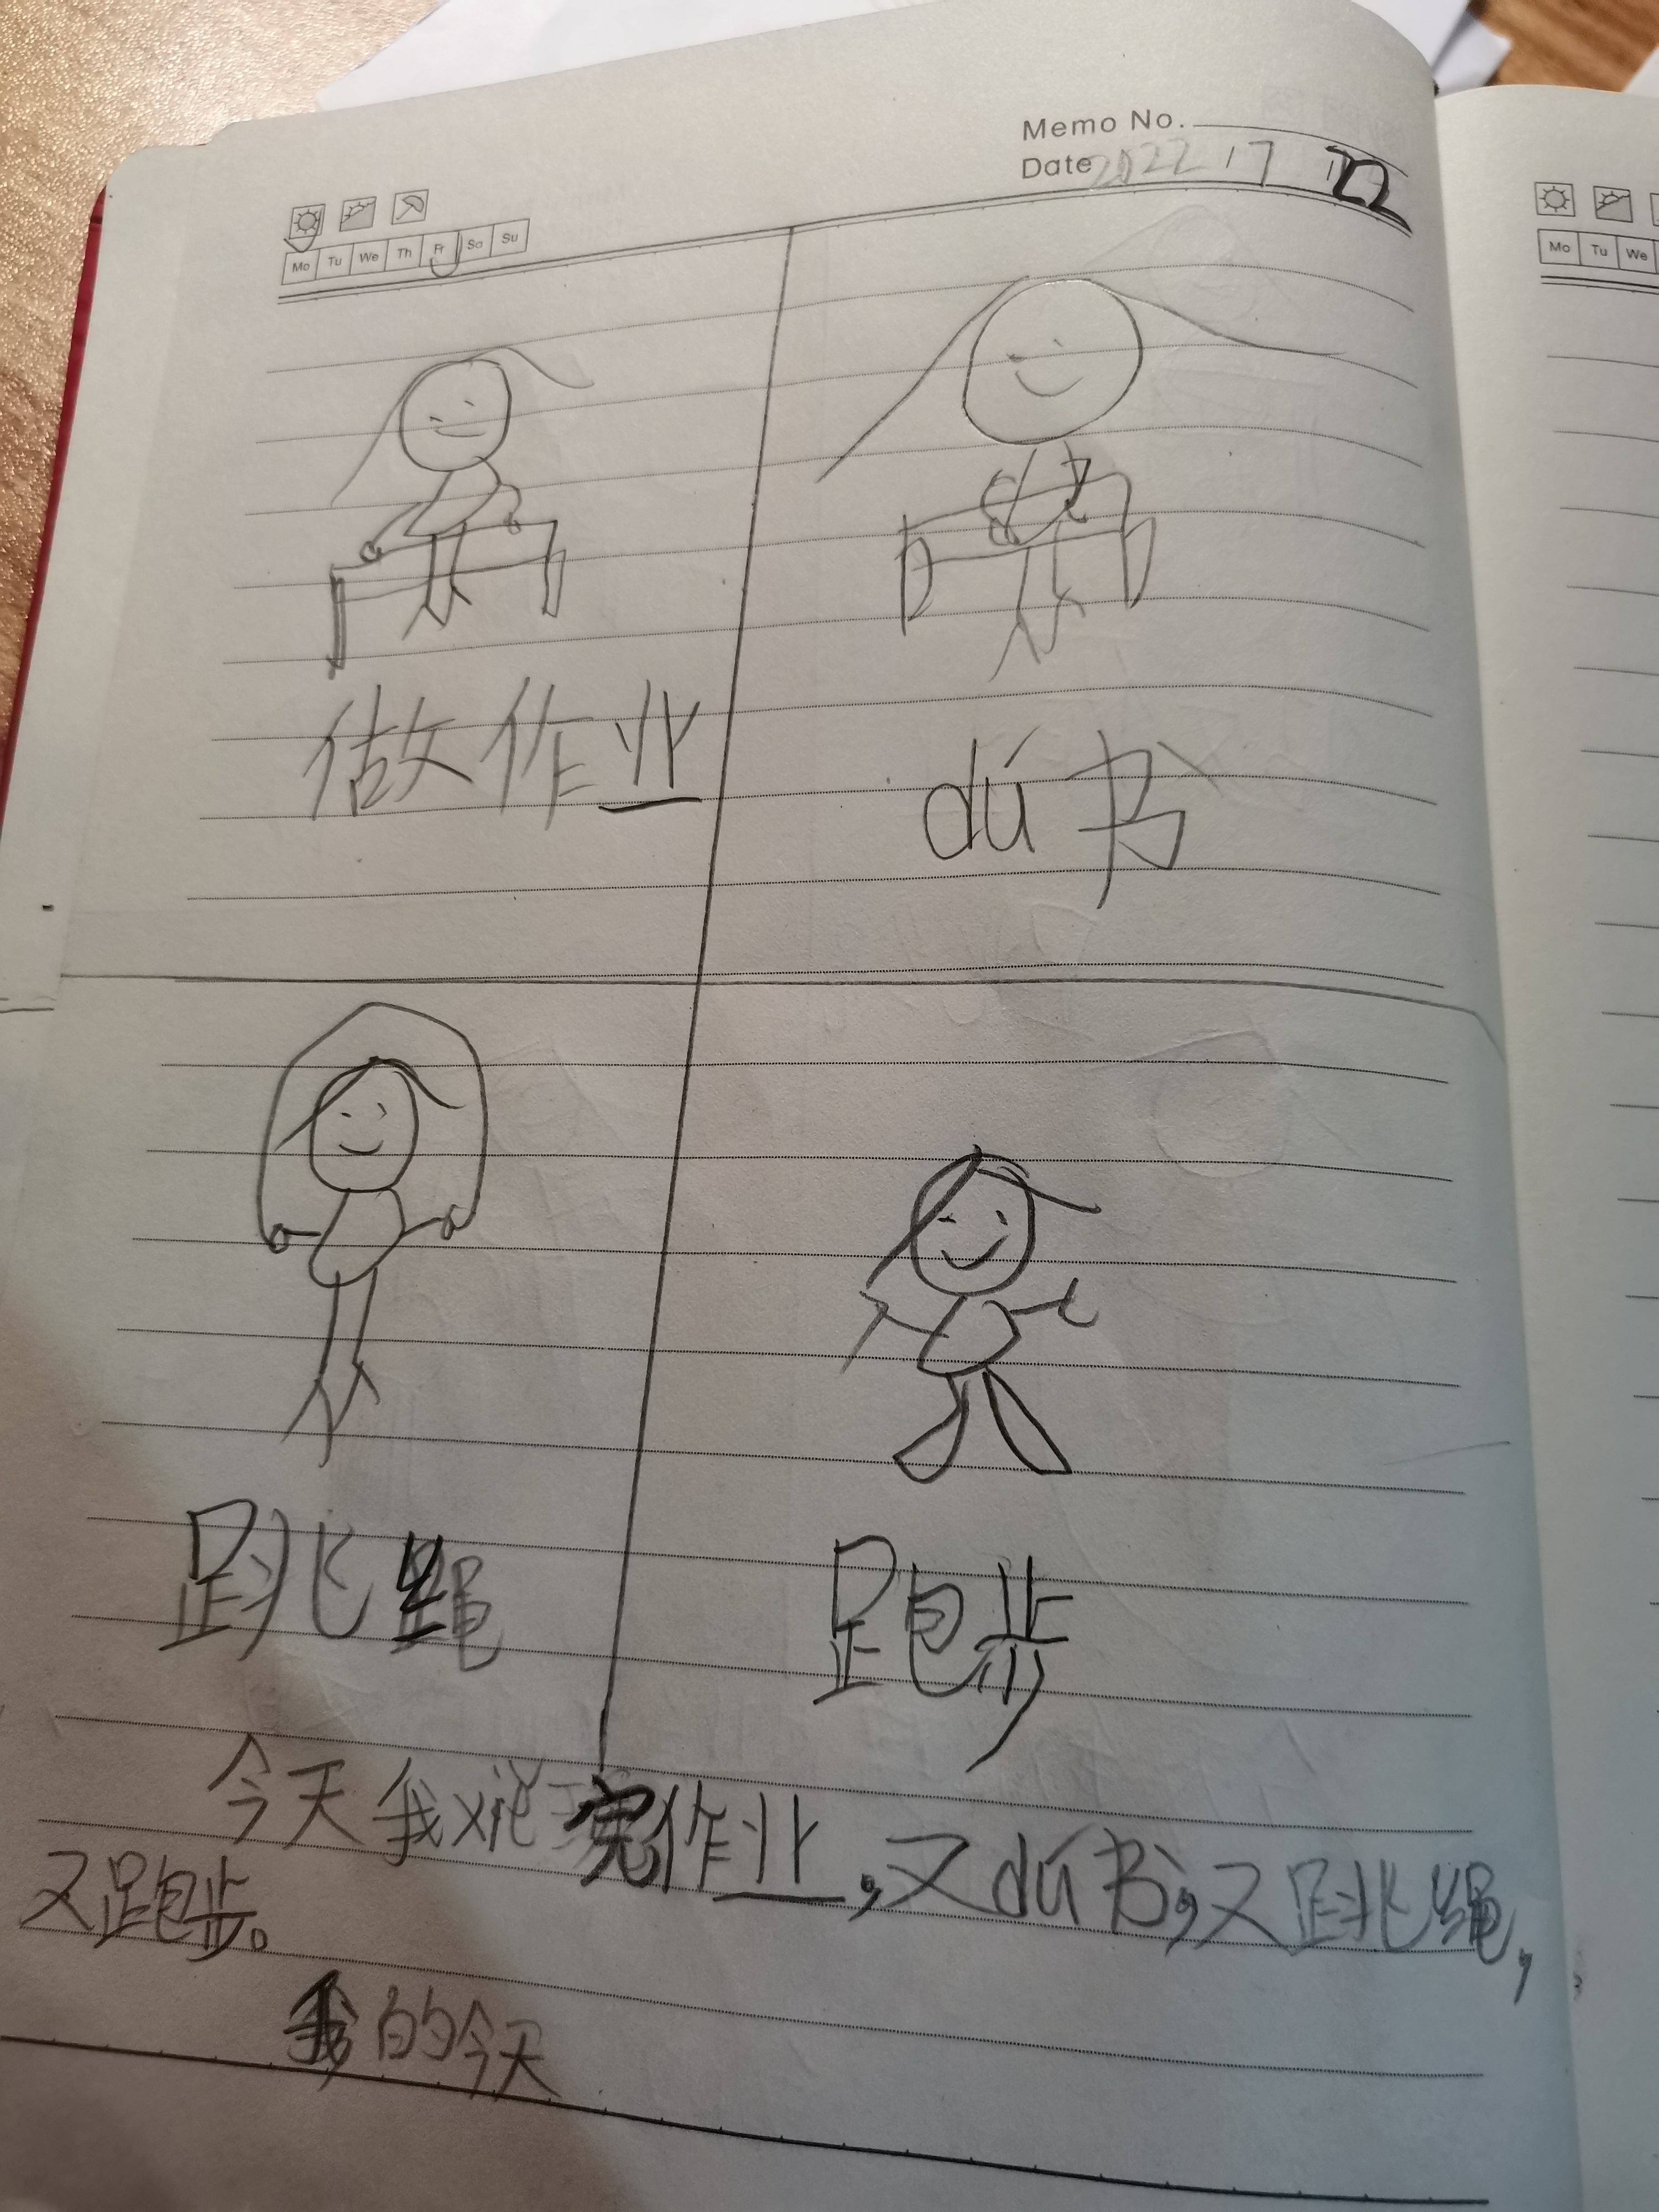 Memo No.
Date 2022 17 22
Mo Tu We Th Fr Sa Su
Mo Tu We
做作业
dú书
跳绳
跑步
今天我完作业,又dú书,又跳绳,
又跑步。
我的今天